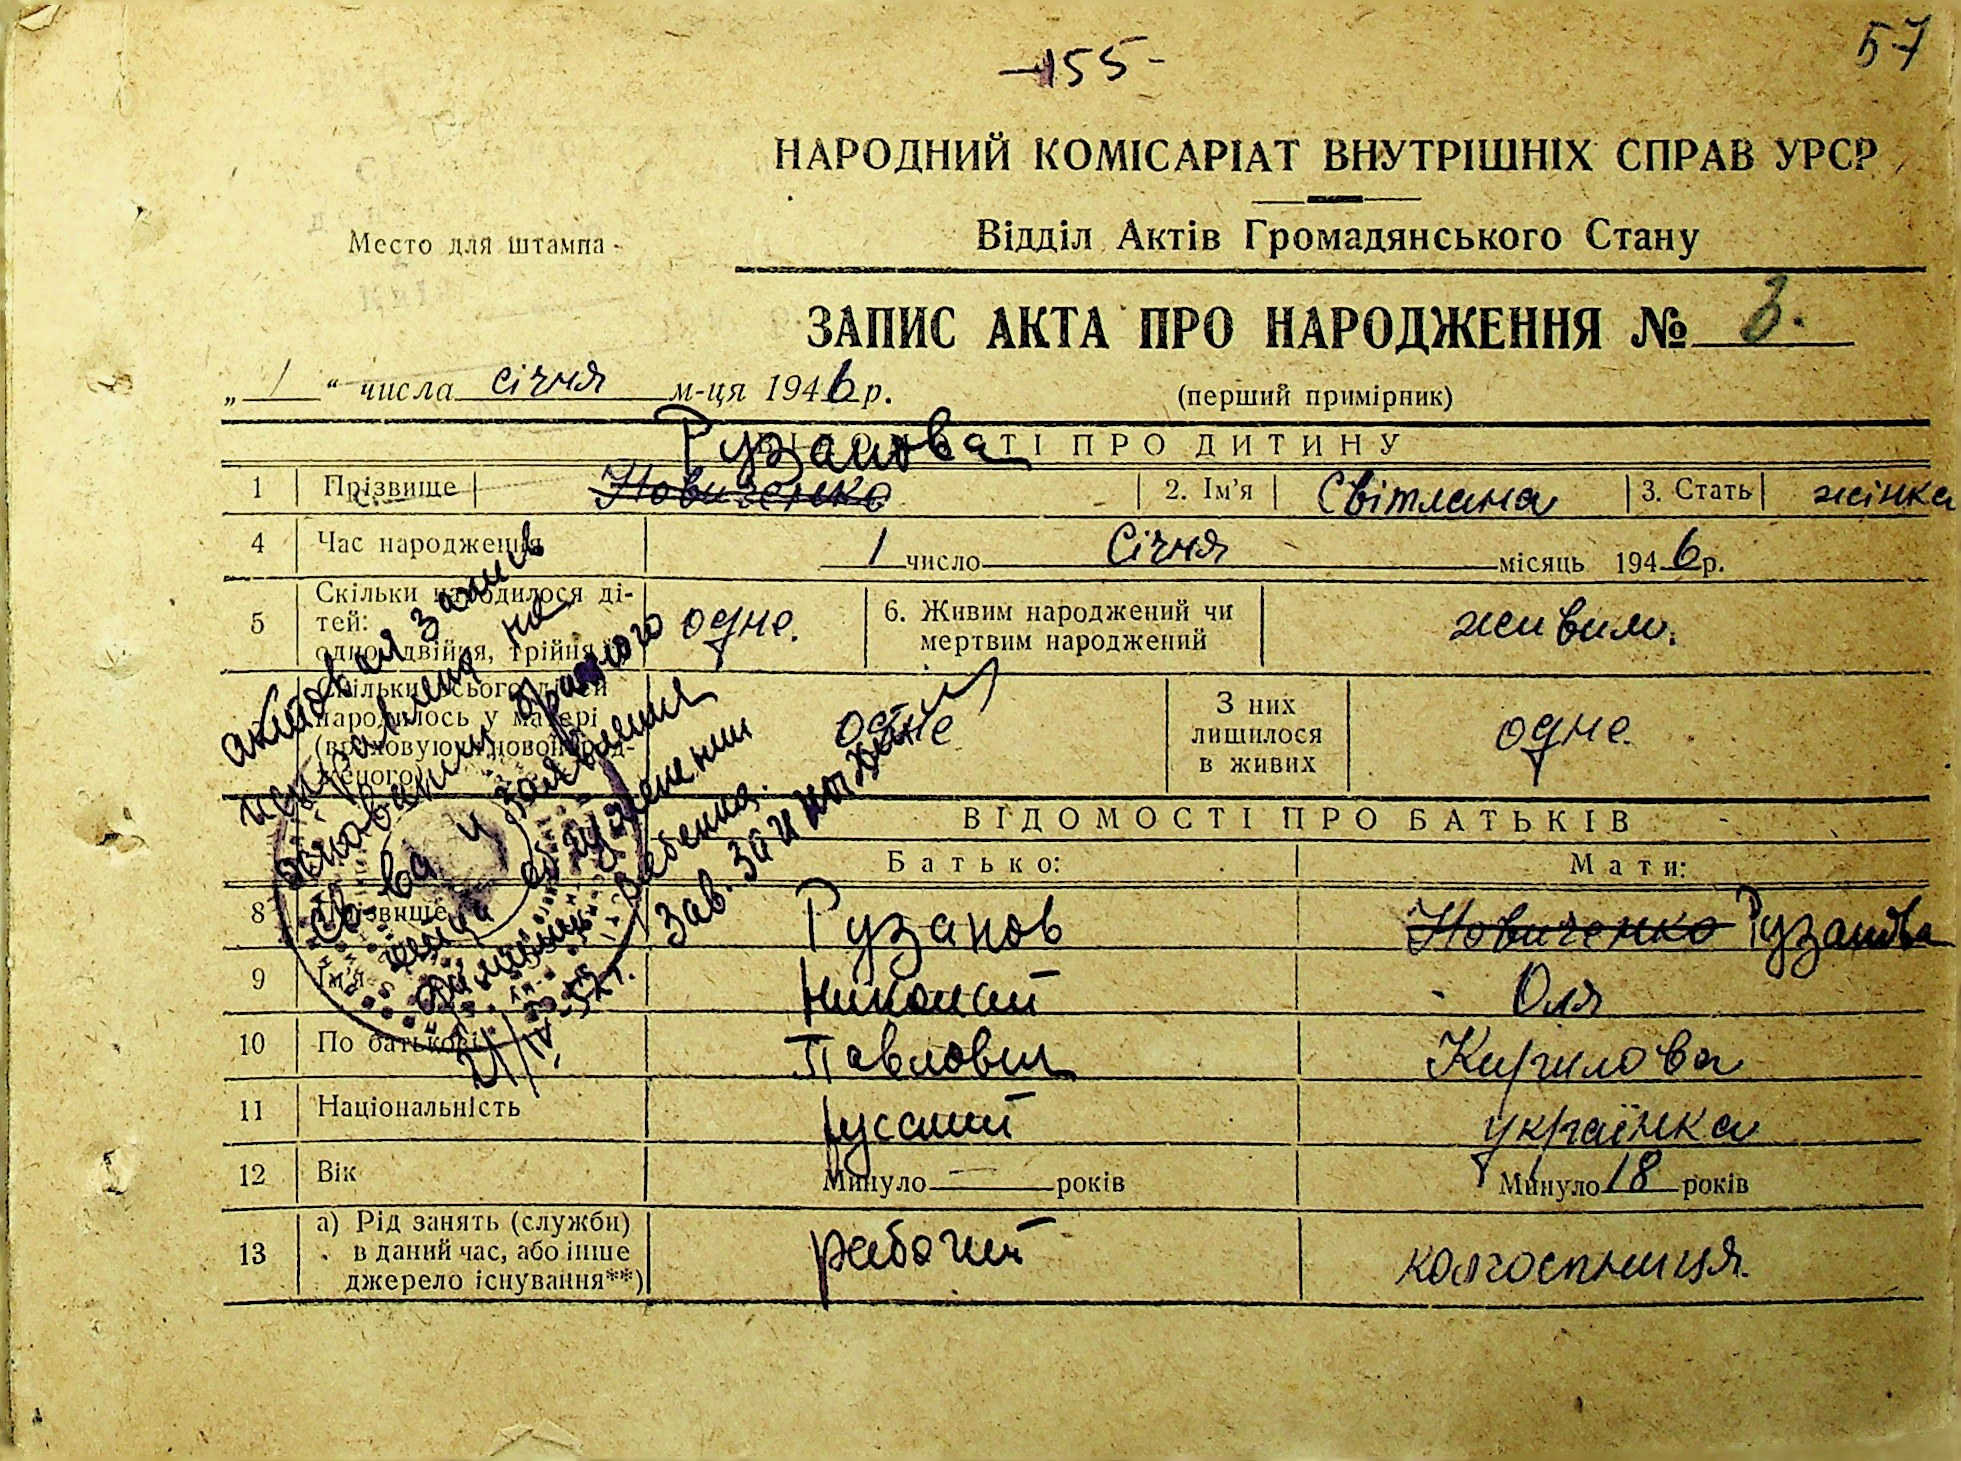 -155-
57
НАРОДНИЙ КОМІСАРІАТ ВНУТРІШНІХ СПРАВ УРСР
Место для штампа
Відділ Актів Громадянського Стану
ЗАПИС АКТА ПРО НАРОДЖЕННЯ № 3.
„ 1 “ числа січня м-ця 1946 р. (перший примірник)
Рузанова
ТІ ПРО ДИТИНУ
1 Прізвище Новиченко 2. Ім'я Світлана 3. Стать жінка
4 Час народження 1 число Січня місяць 1946 р.
5 Скільки народилося ді-
тей:
одно, двійня, трійня
одне. 6. Живим народжений чи
мертвим народжений
живим.
Скільки всього дітей
народилось у матері
(враховуючи новонарод-
женого)
одне
З них
лишилося
в живих
одне.
ВІДОМОСТІ ПРО БАТЬКІВ
Батько: Мати:
8 Прізвище Рузанов Новиченко Рузанова
9 Ім'я Николай Оля
10 По батькові Павлович Кирилова
11 Національність русский українка
12 Вік Минуло — років Минуло 18 років
13 а) Рід занять (служби)
в даний час, або інше
джерело існування**)
рабочий колгоспниця.
актовая запись
исправлена на
основании брачного
св-ва и заявления
отца об усыновлении
ребенка.
21/IV-52г.
Зав. Загс